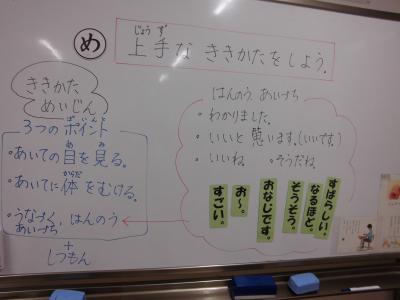 め
じょうず
上手な ききかたをしよう。
ききかた
めいじん
3つのポイント
ぽいんと
・あいての目を見る。
め み
・あいてに体をむける。
からだ
・うなづく、はんのう
あいづち
+
しつもん
はんのう、あいづち
・わかりました。
・いいと思います。(いいです。)
・いいね。 ・そうだね。
すばらしい。
なるほど。
そうそう。
おなじです。
お〜。
すごい。